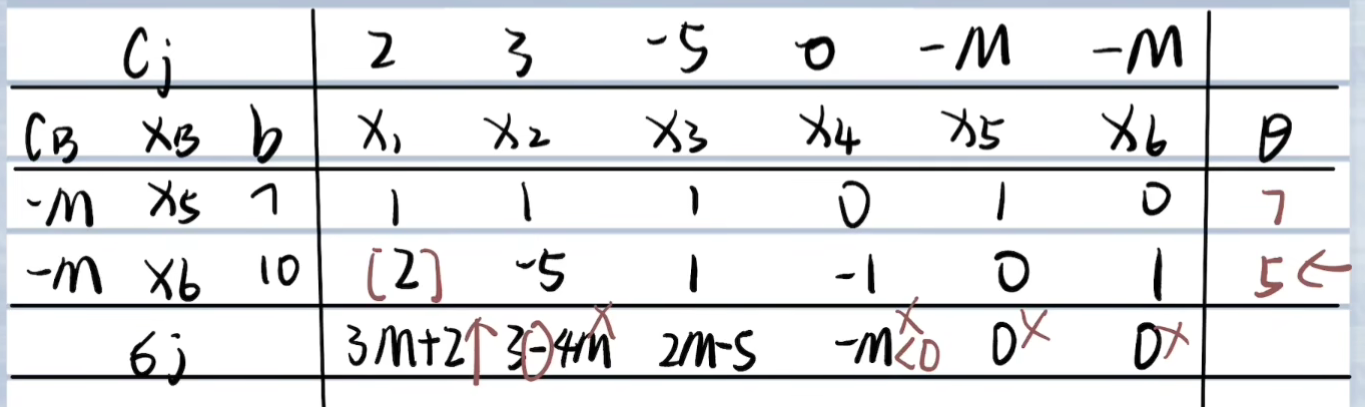 Cj 2 3 -5 0 -M -M
CB XB b X1 X2 X3 X4 X5 X6 θ
-M X5 7 1 1 1 0 1 0 7
-M X6 10 [2] -5 1 -1 0 1 5 ←
6j 3M+2↑ 3-4M× 2M-5 -M<0× 0× 0×